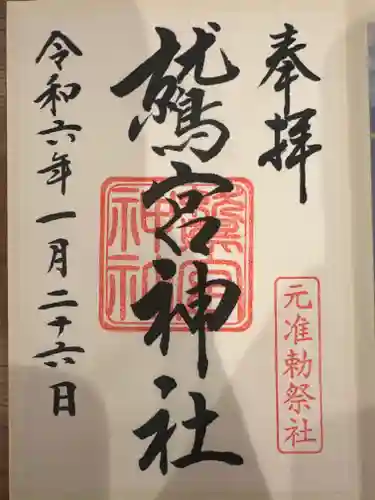 奉拝
元准勅祭社
鷲宮神社
鷲宮神社
令和六年一月二十六日